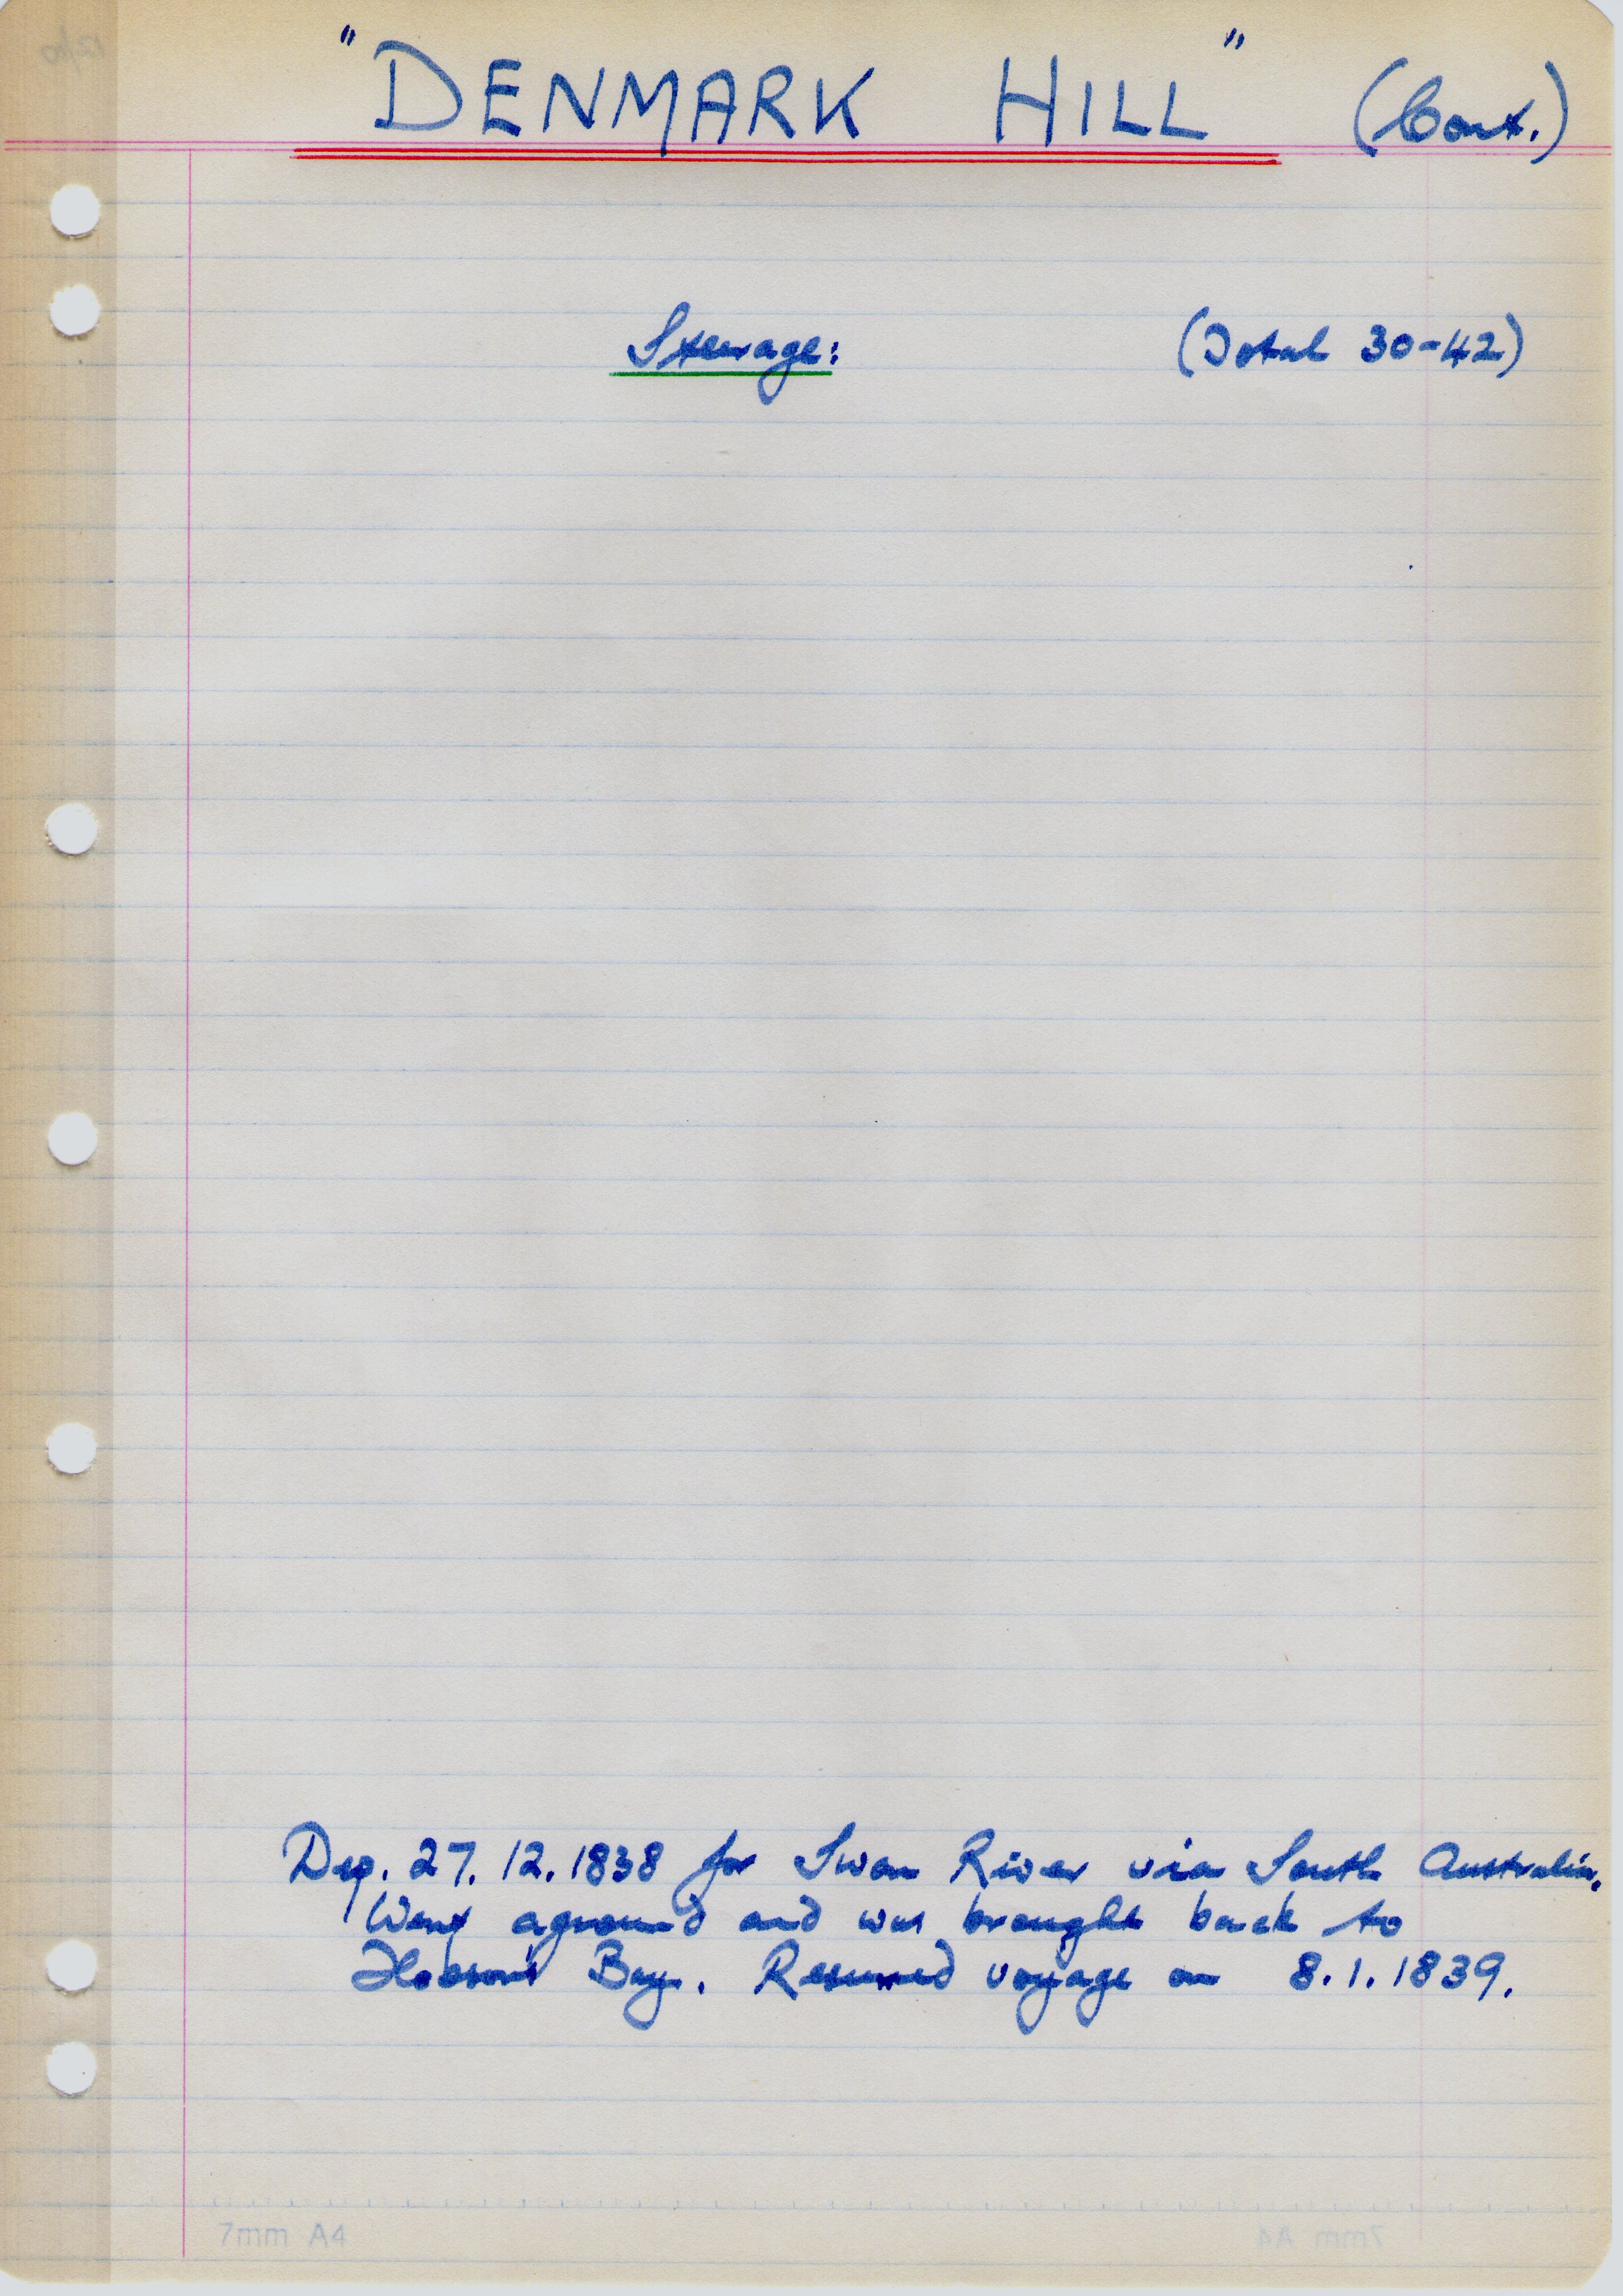 "DENMARK HILL" (Cont.)
Steerage: (Total 30-42)
Dep. 27.12.1838 for Swan River via South Australia.
Went aground and was brought back to
Hobsons Bay. Resumed voyage on 8.1.1839.
7mm A4